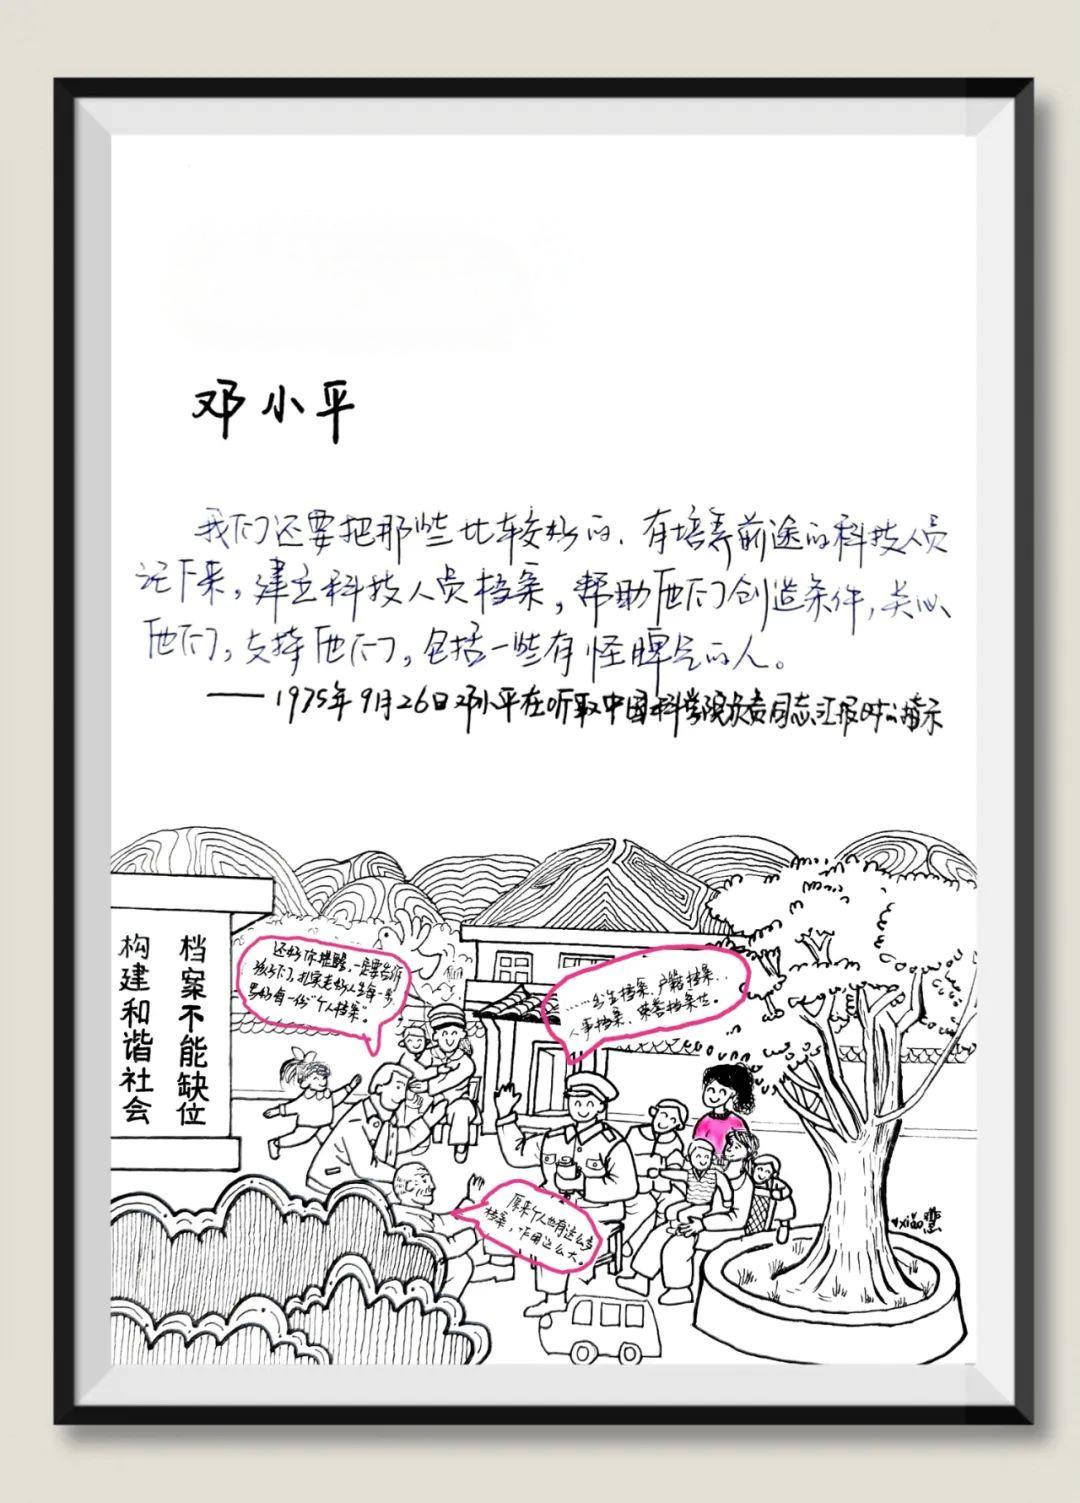 邓小平
我们还要把那些比较好的、有培养前途的科技人员
记下来，建立科技人员档案，帮助他们创造条件，关心
他们，支持他们，包括一些有怪脾气的人。
——1975年9月26日邓小平在听取中国科学院负责同志汇报时的指示
档案不能缺位
构建和谐社会
还好你提醒，一定要告诉
孩子们，
最好有一份“个人档案”。
……出生档案、户籍档案、
人事档案、荣誉档案等。
原来个人也有这么多
档案，作用这么大。
xiao